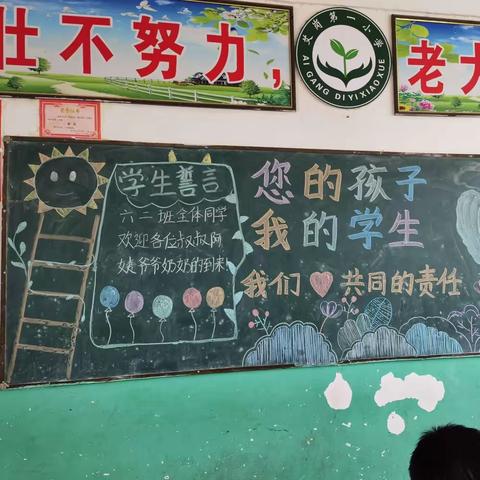 壮不努力,
艾岗第一小学
AI GANG DI YI XIAO XUE
老大
学生誓言
六二班全体同学
欢迎各位叔叔阿
姨爷爷奶奶的到来!
您的孩子
我的学生
我们❤共同的责任